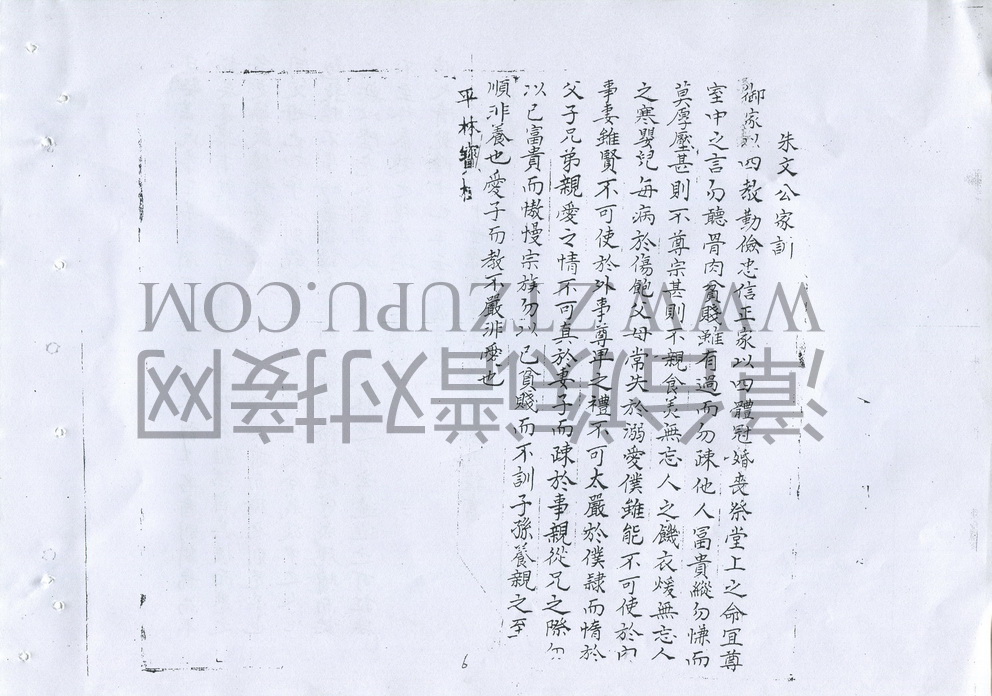 朱文公家訓
御家以四教勤儉忠信正家以四體冠婚喪祭堂上之命宜尊
室中之言勿聽骨肉貧賤雖有過而勿疎他人冨貴縱勿慊而
莫厚壓甚則不尊宗甚則不親食美無忘人之饑衣煖無忘人
之寒嬰兒每病於傷飽父母常失於溺愛僕雖能不可使於內
事妻雖賢不可使於外事尊卑之禮不可太嚴於僕隸而惰於
父子兄弟親愛之情不可真於妻子而疎於事親從兄之際勿
以已富貴而慠慢宗族勿以已貧賤而不訓子孫養親之至
順非養也愛子而教不嚴非愛也
平林
6
WWW.ZTZUPU.COM
漳台族谱对接网